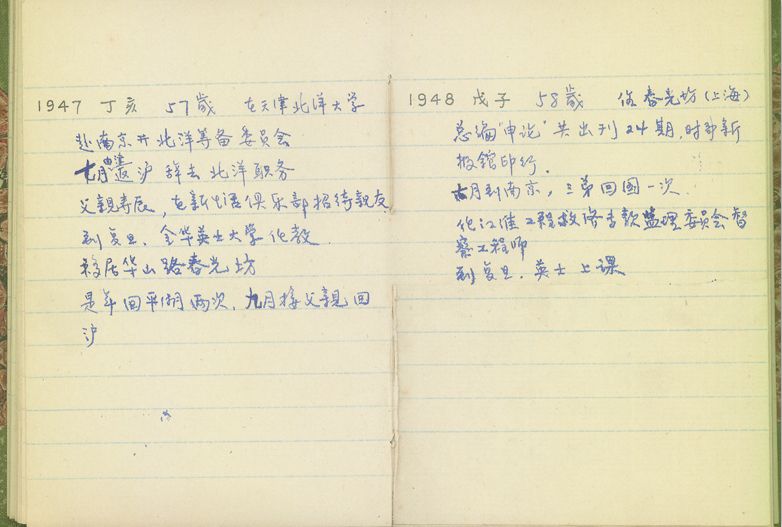 1947 丁亥 57歲 在天津北洋大学
赴南京开北洋筹备委员会
七月由津返沪 辞去北洋职务
父親寿辰,在新生活俱乐部招待親友
到复旦、金华英士大学任教
移居华山路春光坊
是年回平湖两次,九月接父親回
沪
1948 戊子 58歲 住春光坊(上海)
总编"申论"共出刊24期,时事新
报馆印行.
月到南京,三弟回國一次
任江淮工程教济専款监理委员会督
察工程师
到复旦、英士上课